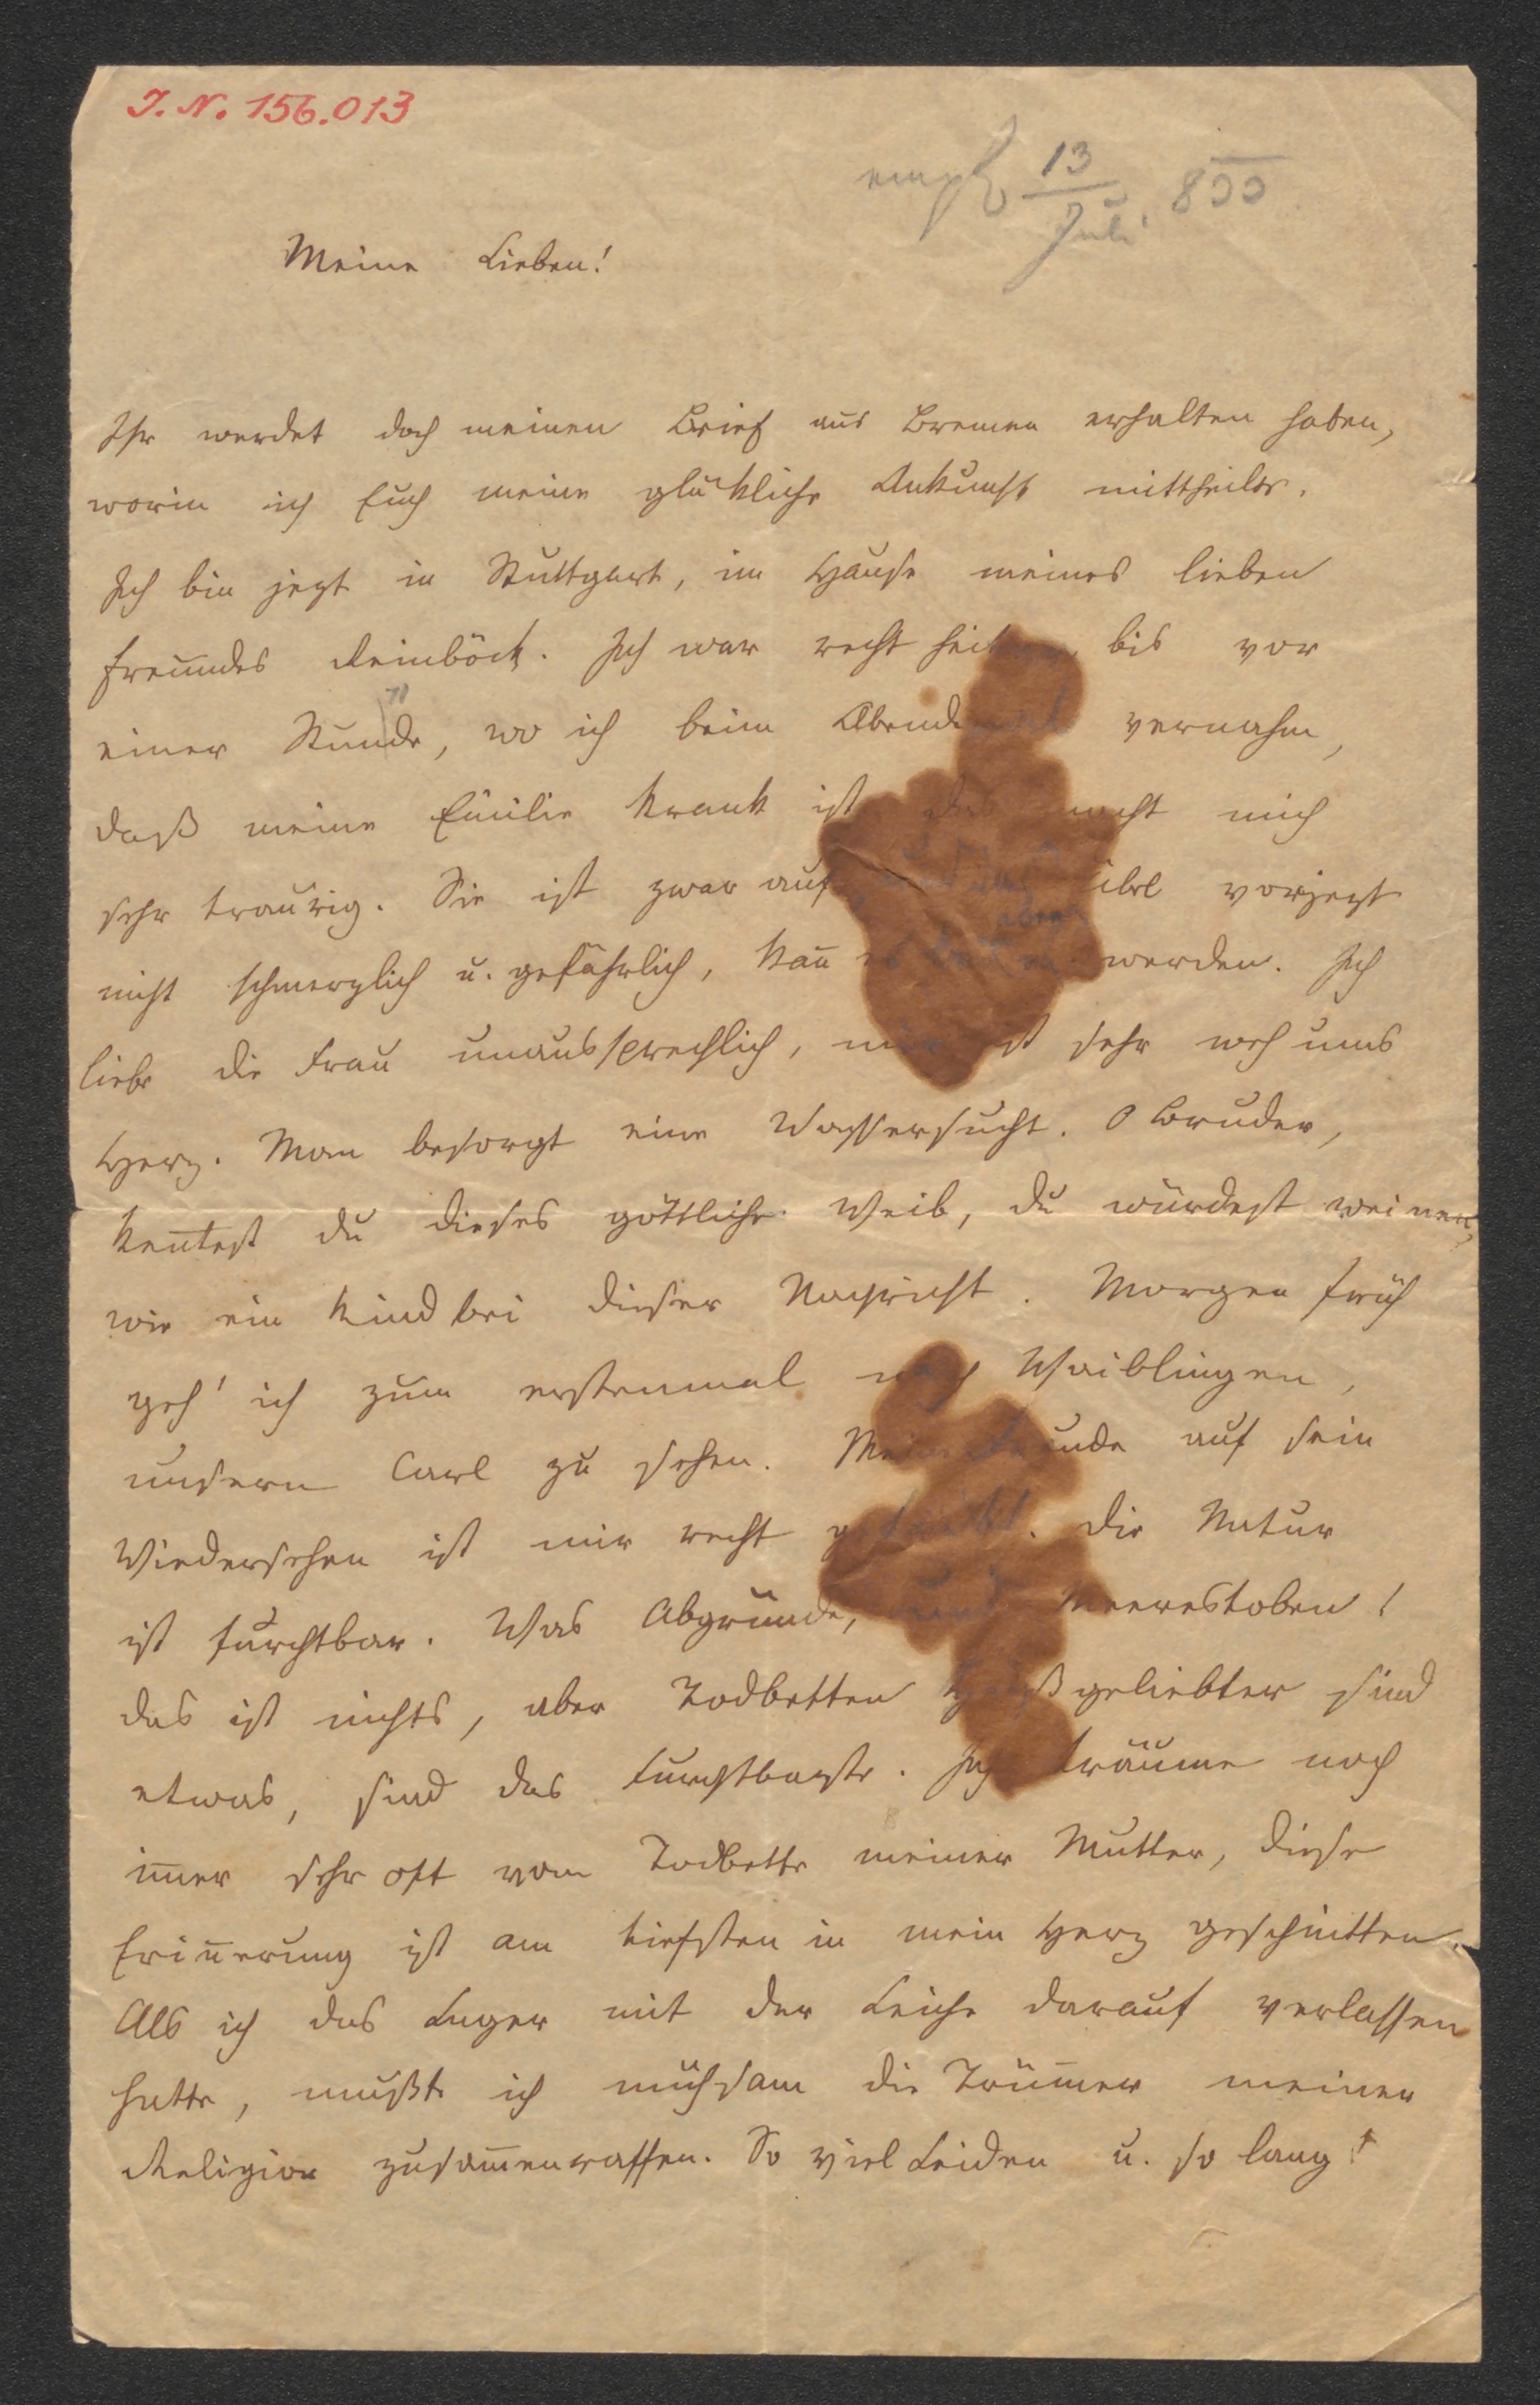 I. N. 156.013
empf 13/Juli 833
Meine Lieben!
Ihr werdet doch meinen Brief aus Bremen erhalten haben,
worin ich Euch meine glückliche Ankunft mittheilte.
Ich bin jezt in Stuttgart, im Hause meines lieben
Freundes Reinböck. Ich war recht heiter, bis vor
einer Stunde, wo ich beim Abendmahl vernahm,
daß meine Emilie krank ist das macht mich
sehr traurig. Sie ist zwar auf übel vorjezt
nicht schmerzlich u. gefährlich, kan̄ es aber werden. Ich
liebe die Frau unaussprechlich, mir ist sehr weh ums
Herz. Man besorgt eine Wassersucht. O Bruder,
ken̄test du dieses göttliche Weib, du würdest weinen,
wie ein Kind bei dieser Nachricht. Morgen früh
geh' ich zum erstenmal nach Waiblingen,
unsern Carl zu sehen. Meine Freude auf sein
Wiedersehen ist mir recht getrübt. Die Natur
ist furchtbar. Was Abgründe, und Meerestoben!
das ist nichts, aber Todbetten Heißgeliebter sind
etwas, sind das Furchtbarste. Ich träume noch
im̄er sehr oft vom Todbette meiner Mutter, diese
Erin̄erung ist am tiefsten in mein Herz geschnitten.
Als ich das Lager mit der Leiche darauf verlassen
hatte, mußte ich mühsam die Trüm̄er meiner
Religion zusam̄enraffen. So viel Leiden u. so lang!